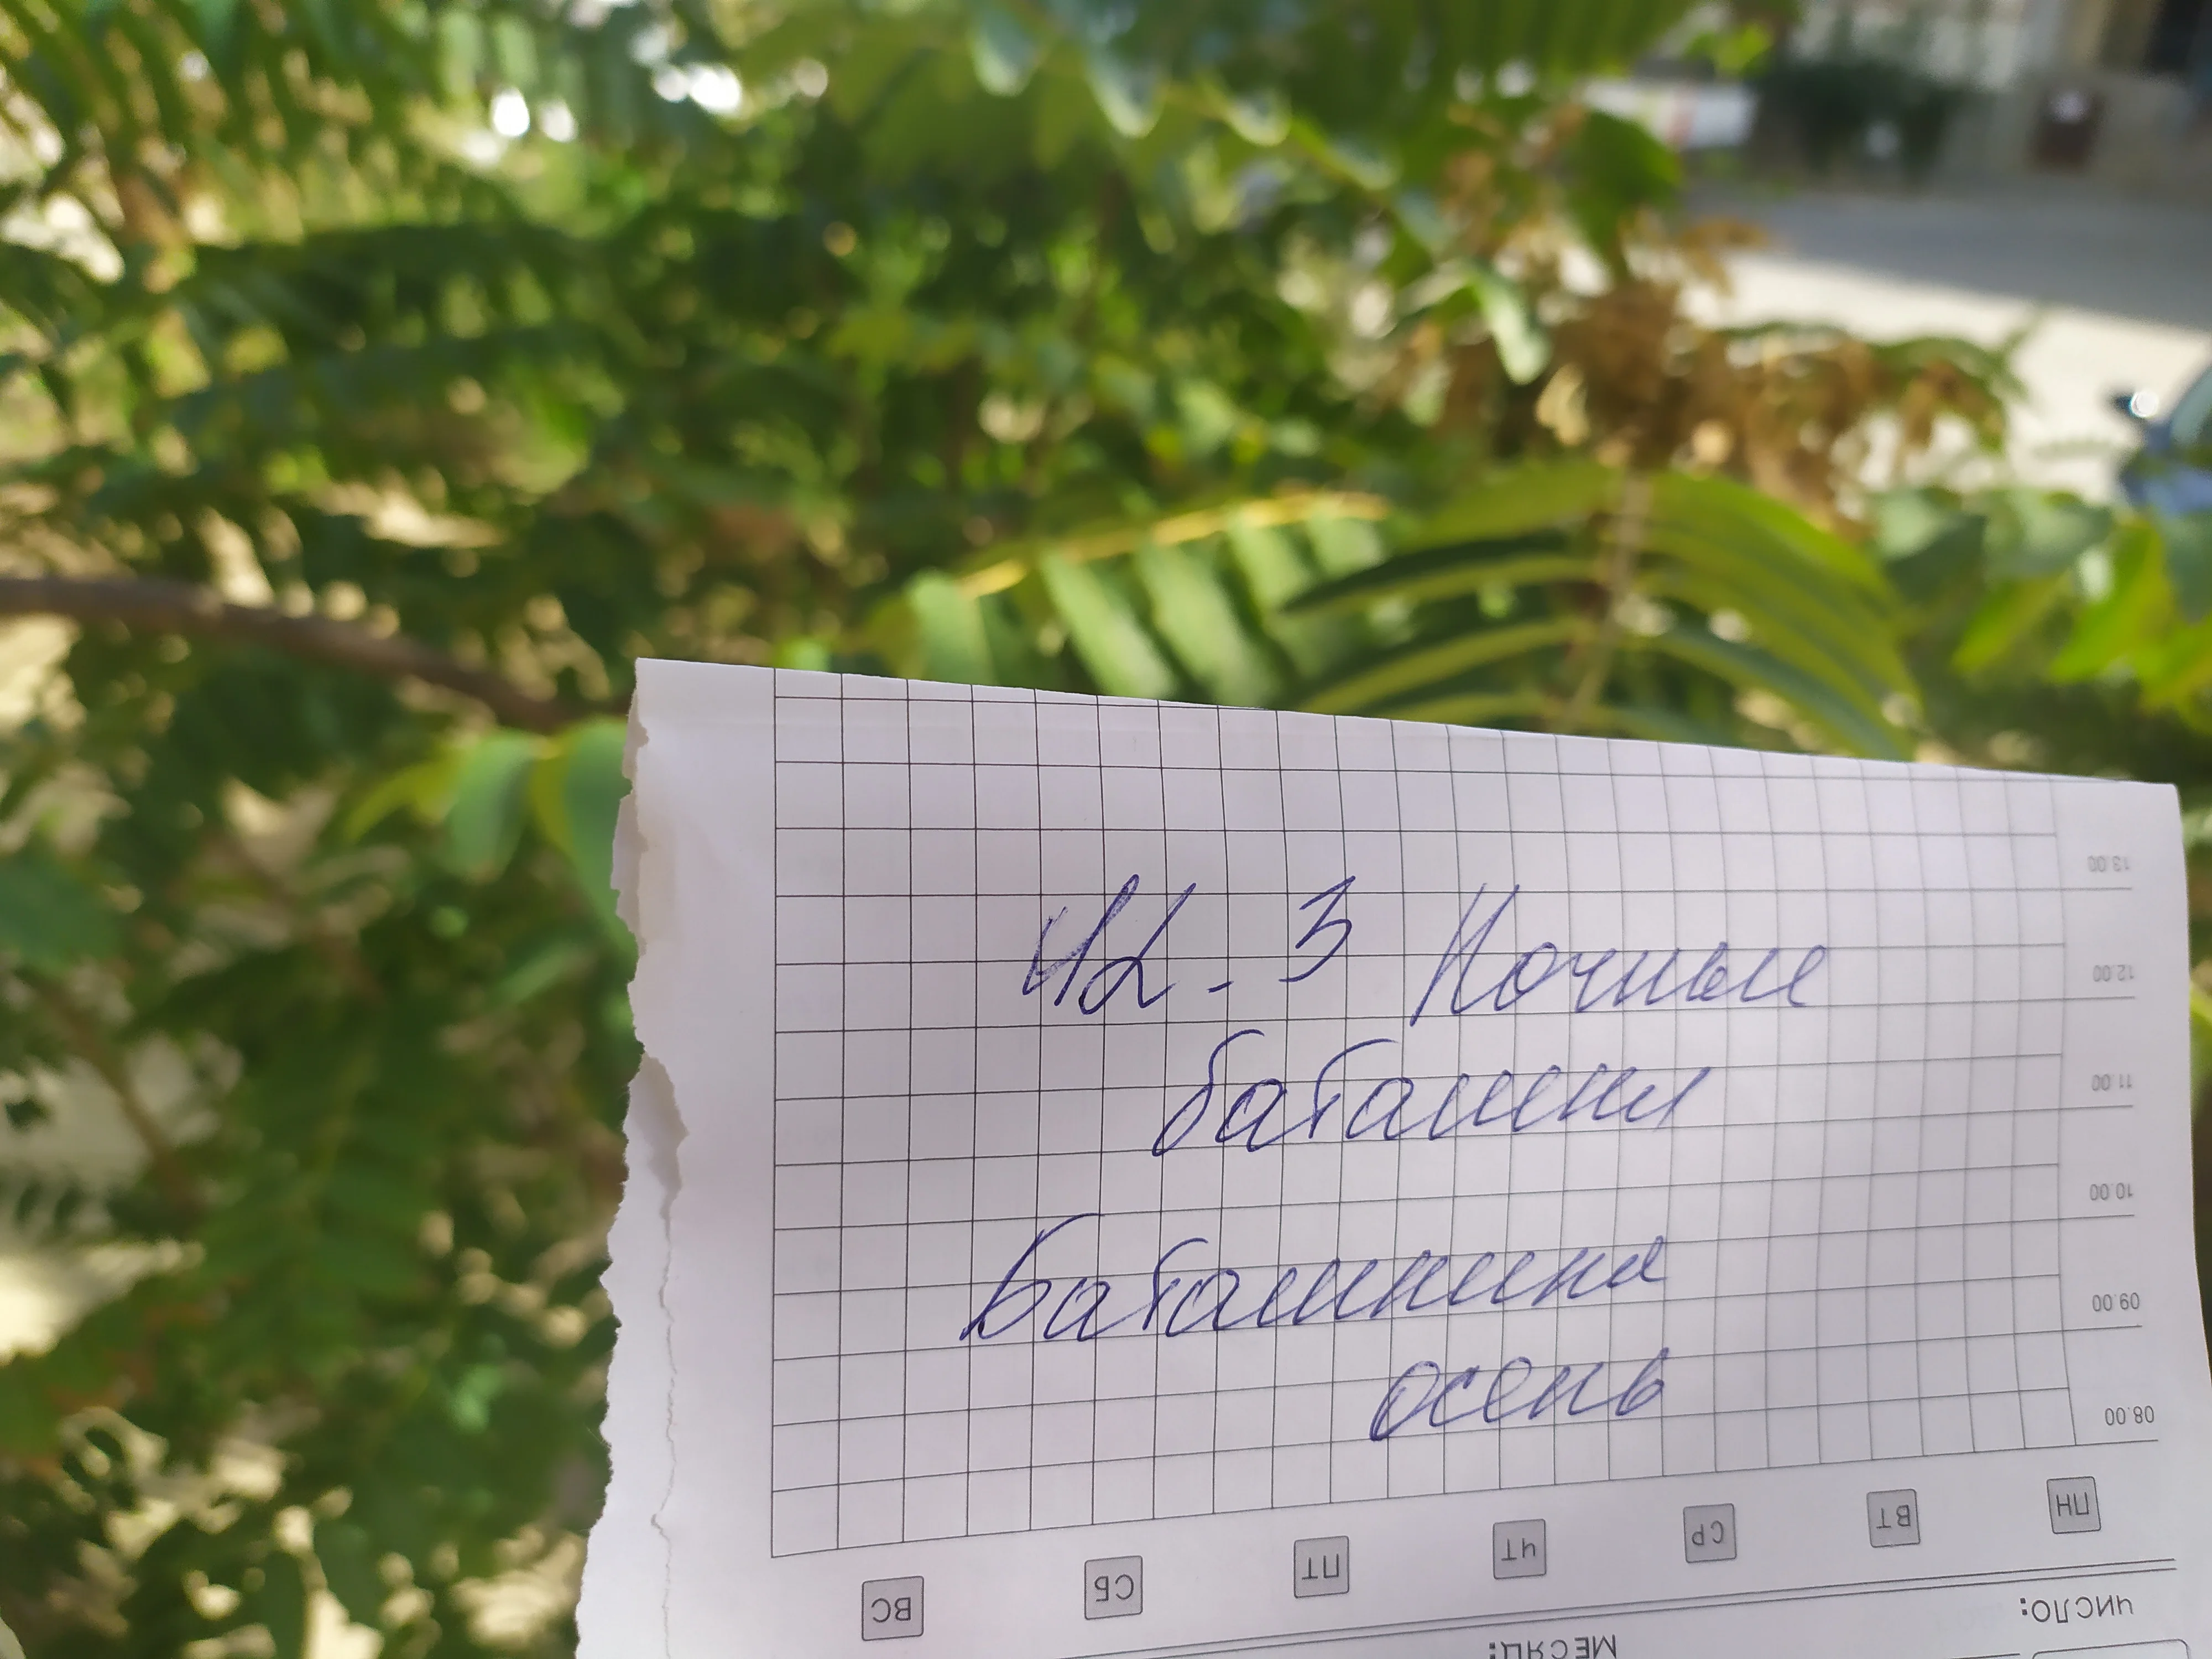 13.00
ЧД - 3 Ночные
12.00
баташки
11.00
10.00
Баташкина
09.00
осень
08.00
ВС СБ ПТ ЧТ СР ВТ ПН
ЧИСЛО:
МЕСЯЦ: